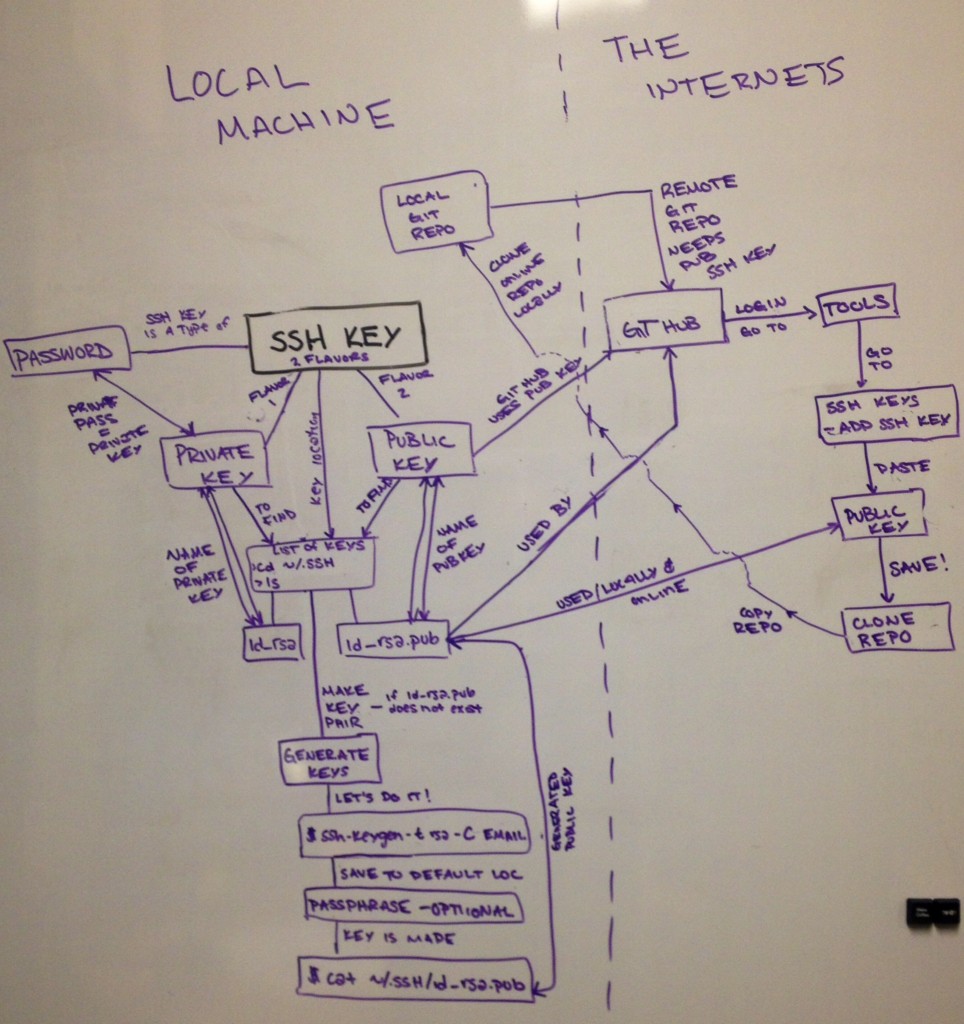 LOCAL
MACHINE
THE
INTERNETS
LOCAL
GIT
REPO
REMOTE
GIT
REPO
NEEDS
PUB
SSH KEY
CLONE
ONLINE
REPO
LOCALLY
GITHUB
LOGIN
GO TO
TOOLS
GO
TO
SSH KEYS
- ADD SSH KEY
PASTE
PUBLIC
KEY
SAVE!
CLONE
REPO
COPY
REPO
PASSWORD
SSH KEY
IS A TYPE OF
SSH KEY
2 FLAVORS
FLAVOR
1
FLAVOR
2
KEY LOCATION
PRIVATE
PASS
=
PRIVATE
KEY
PRIVATE
KEY
PUBLIC
KEY
GITHUB
USES PUB KEY
TO
FIND
TO FIND
NAME
OF
PRIVATE
KEY
NAME
OF
PUBKEY
LIST OF KEYS
>cd ~/.SSH
>ls
id_rsa
id_rsa.pub
USED BY
USED/LOCALLY &
ONLINE
MAKE
KEY
PAIR
- if id-rsa.pub
does not exist
GENERATE
KEYS
LET'S DO IT!
$ ssh-keygen -t rsa -C EMAIL
SAVE TO DEFAULT LOC
PASSPHRASE - OPTIONAL
KEY IS MADE
$ cat ~/.SSH/id_rsa.pub
GENERATED
PUBLIC KEY